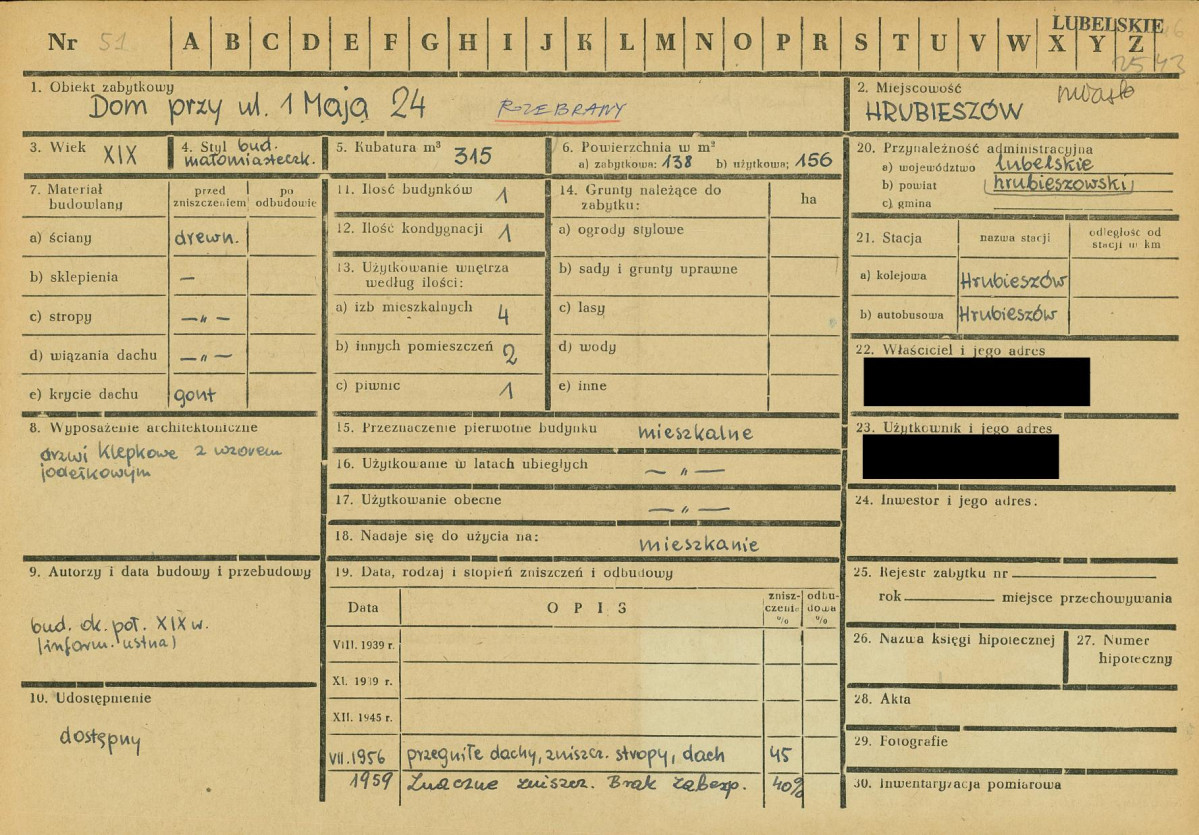 LUBELSKIE
Nr 51 A B C D E F G H I J K L M N O P R S T U V W X Y Z
2543
1. Obiekt zabytkowy
Dom przy ul. 1 Maja 24 ROZEBRANY
2. Miejscowość miasto
HRUBIESZÓW
3. Wiek XIX
4. Styl bud.
małomiasteczk.
5. Kubatura m³ 315
6. Powierzchnia w m²
a) zabytkowa: 138 b) użytkowa: 156
20. Przynależność administracyjna
a) województwo lubelskie
b) powiat hrubieszowski
c) gmina
7. Materiał budowlany
przed zniszczeniem
po odbudowie
a) ściany drewn.
b) sklepienia —
c) stropy —„—
d) wiązania dachu —„—
e) krycie dachu gont
11. Ilość budynków 1
12. Ilość kondygnacji 1
13. Użytkowanie wnętrza
według ilości:
a) izb mieszkalnych 4
b) innych pomieszczeń 2
c) piwnic 1
14. Grunty należące do
zabytku:
ha
a) ogrody stylowe
b) sady i grunty uprawne
c) lasy
d) wody
e) inne
21. Stacja
nazwa stacji
odległość od
stacji w km
a) kolejowa Hrubieszów
b) autobusowa Hrubieszów
22. Właściciel i jego adres
23. Użytkownik i jego adres
24. Inwestor i jego adres:
8. Wyposażenie architektoniczne
drzwi klepkowe z wzorem
jodełkowym
15. Przeznaczenie pierwotne budynku mieszkalne
16. Użytkowanie w latach ubiegłych —„—
17. Użytkowanie obecne —„—
18. Nadaje się do użycia na: mieszkanie
9. Autorzy i data budowy i przebudowy
bud. ok. poł. XIX w.
(inform. ustna)
10. Udostępnienie
dostępny
19. Data, rodzaj i stopień zniszczeń i odbudowy
Data
OPIS
znisz-
czenie
%
odbu-
dowa
%
VIII. 1939 r.
XI. 1939 r.
XII. 1945 r.
VII. 1956 przegniłe dachy, zniszcz. stropy, dach 45
1959 Znaczne zniszcz. Brak zabezp. 40%
25. Rejestr zabytku nr
rok miejsce przechowywania
26. Nazwa księgi hipotecznej
27. Numer
hipoteczny
28. Akta
29. Fotografie
30. Inwentaryzacja pomiarowa